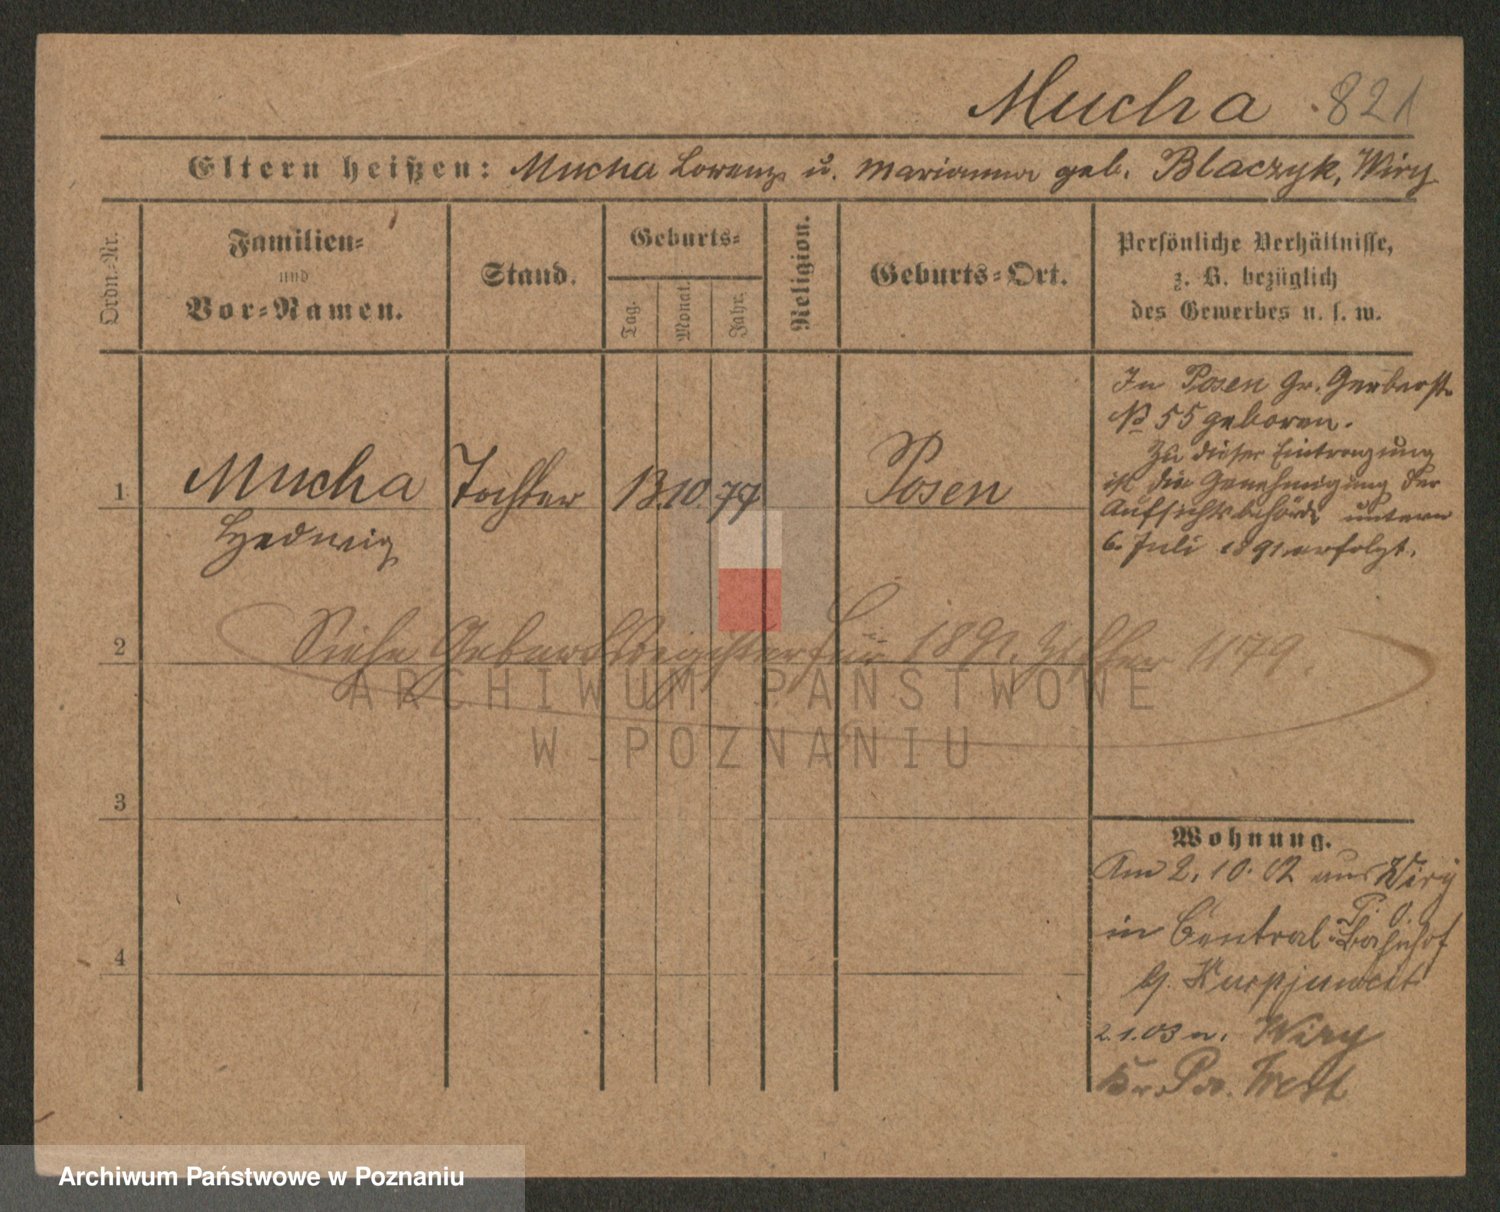 Mucha 821
Eltern heißen: Mucha Lorenz u. Marianna geb. Blaczyk, Wiry
Ordn.-Nr.
Familien-
und
Vor-Namen.
Stand.
Geburts-
Tag.
Monat.
Jahr.
Religion.
Geburts-Ort.
Persönliche Verhältnisse,
z. B. bezüglich
des Gewerbes u. s. w.
In Posen Gr. Gerberst.
№ 55 geboren.
Zu dieser Eintragung
ist die Genehmigung der
Aufsichtsbehörde unterm
6. Juli 1891 erfolgt.
1 Mucha Tochter 13. 10. 77 Posen
Hedwig
2 Siehe Geburtsregister für 1891. Ziffer 1179.
ARCHIWUM PAŃSTWOWE
W POZNANIU
3
Wohnung.
Am 2. 10. 02 aus Wiry
in Central-Bahnhof
4
2.1.03 n. Wiry
Kr. Pos. West
Archiwum Państwowe w Poznaniu